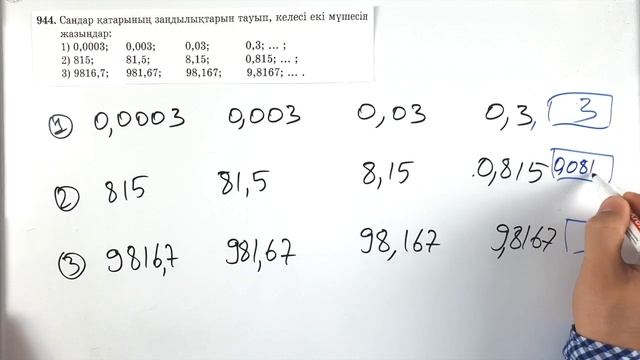 944. Сандар қатарының заңдылықтарын тауып, келесі екі мүшесін
жазыңдар:
1) 0,0003; 0,003; 0,03; 0,3; ... ;
2) 815; 81,5; 8,15; 0,815; ... ;
3) 9816,7; 981,67; 98,167; 9,8167; ... .
1 0,0003 0,003 0,03 0,3, 3
2 815 81,5 8,15 0,815 0,081
3 9816,7 981,67 98,167 9,8167